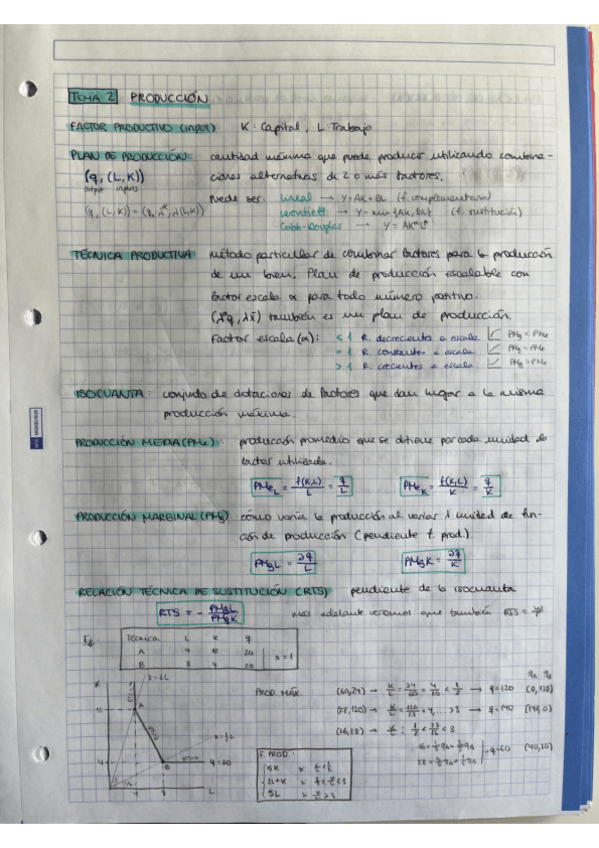 TEMA 2 PRODUCCIÓN
FACTOR PRODUCTIVO (input) K: Capital, L: Trabajo
PLAN DE PRODUCCIÓN: cantidad máxima que puede producir utilizando combina-
(q, (L,K)) ciones alternativas de 2 o más factores.
output inputs
Puede ser: lineal → Y = AK + BL (f. complementarios)
leontieff → Y = min {AK, BL} (f. sustitución)
Cobb-Douglas → Y = AK L
TÉCNICA PRODUCTIVA método particular de combinar factores para la producción
de un bien. Plan de producción escalable con
factor escala α para todo número positivo.
también es un plan de producción.
Factor escala (α): < 1 R. decrecientes a escala PMg < PMe
= 1 R. constantes a escala PMg = PMe
> 1 R. crecientes a escala PMg > PMe
ISOCUANTA: conjunto de dotaciones de factores que dan lugar a la misma
producción máxima.
PRODUCCIÓN MEDIA (PMe): producción promedio que se obtiene por cada unidad de
factor utilizada.
PMe L = f(K,L)/L = q/L PMe K = f(K,L)/K = q/K
PRODUCCIÓN MARGINAL (PMg) cómo varía la producción al variar 1 unidad de fun-
ción de producción (pendiente f. prod.)
PMgL = ∂q/L PMgK = ∂q/K
RELACIÓN TÉCNICA DE SUSTITUCIÓN (RTS) pendiente de la isocuanta
RTS = - PMgL/PMgK más adelante veremos que también RTS =
Ej. Técnica L K q
A 4 12 20 α = 1
B 8 4 20
PROD. MÁX. (60,24) → K/L = 24/60 = 4/10 < 1/2 → q = 120 (0,120)
> 3
K
A
B
L
4 8
F. PROD.:
5K
2L+K
5L